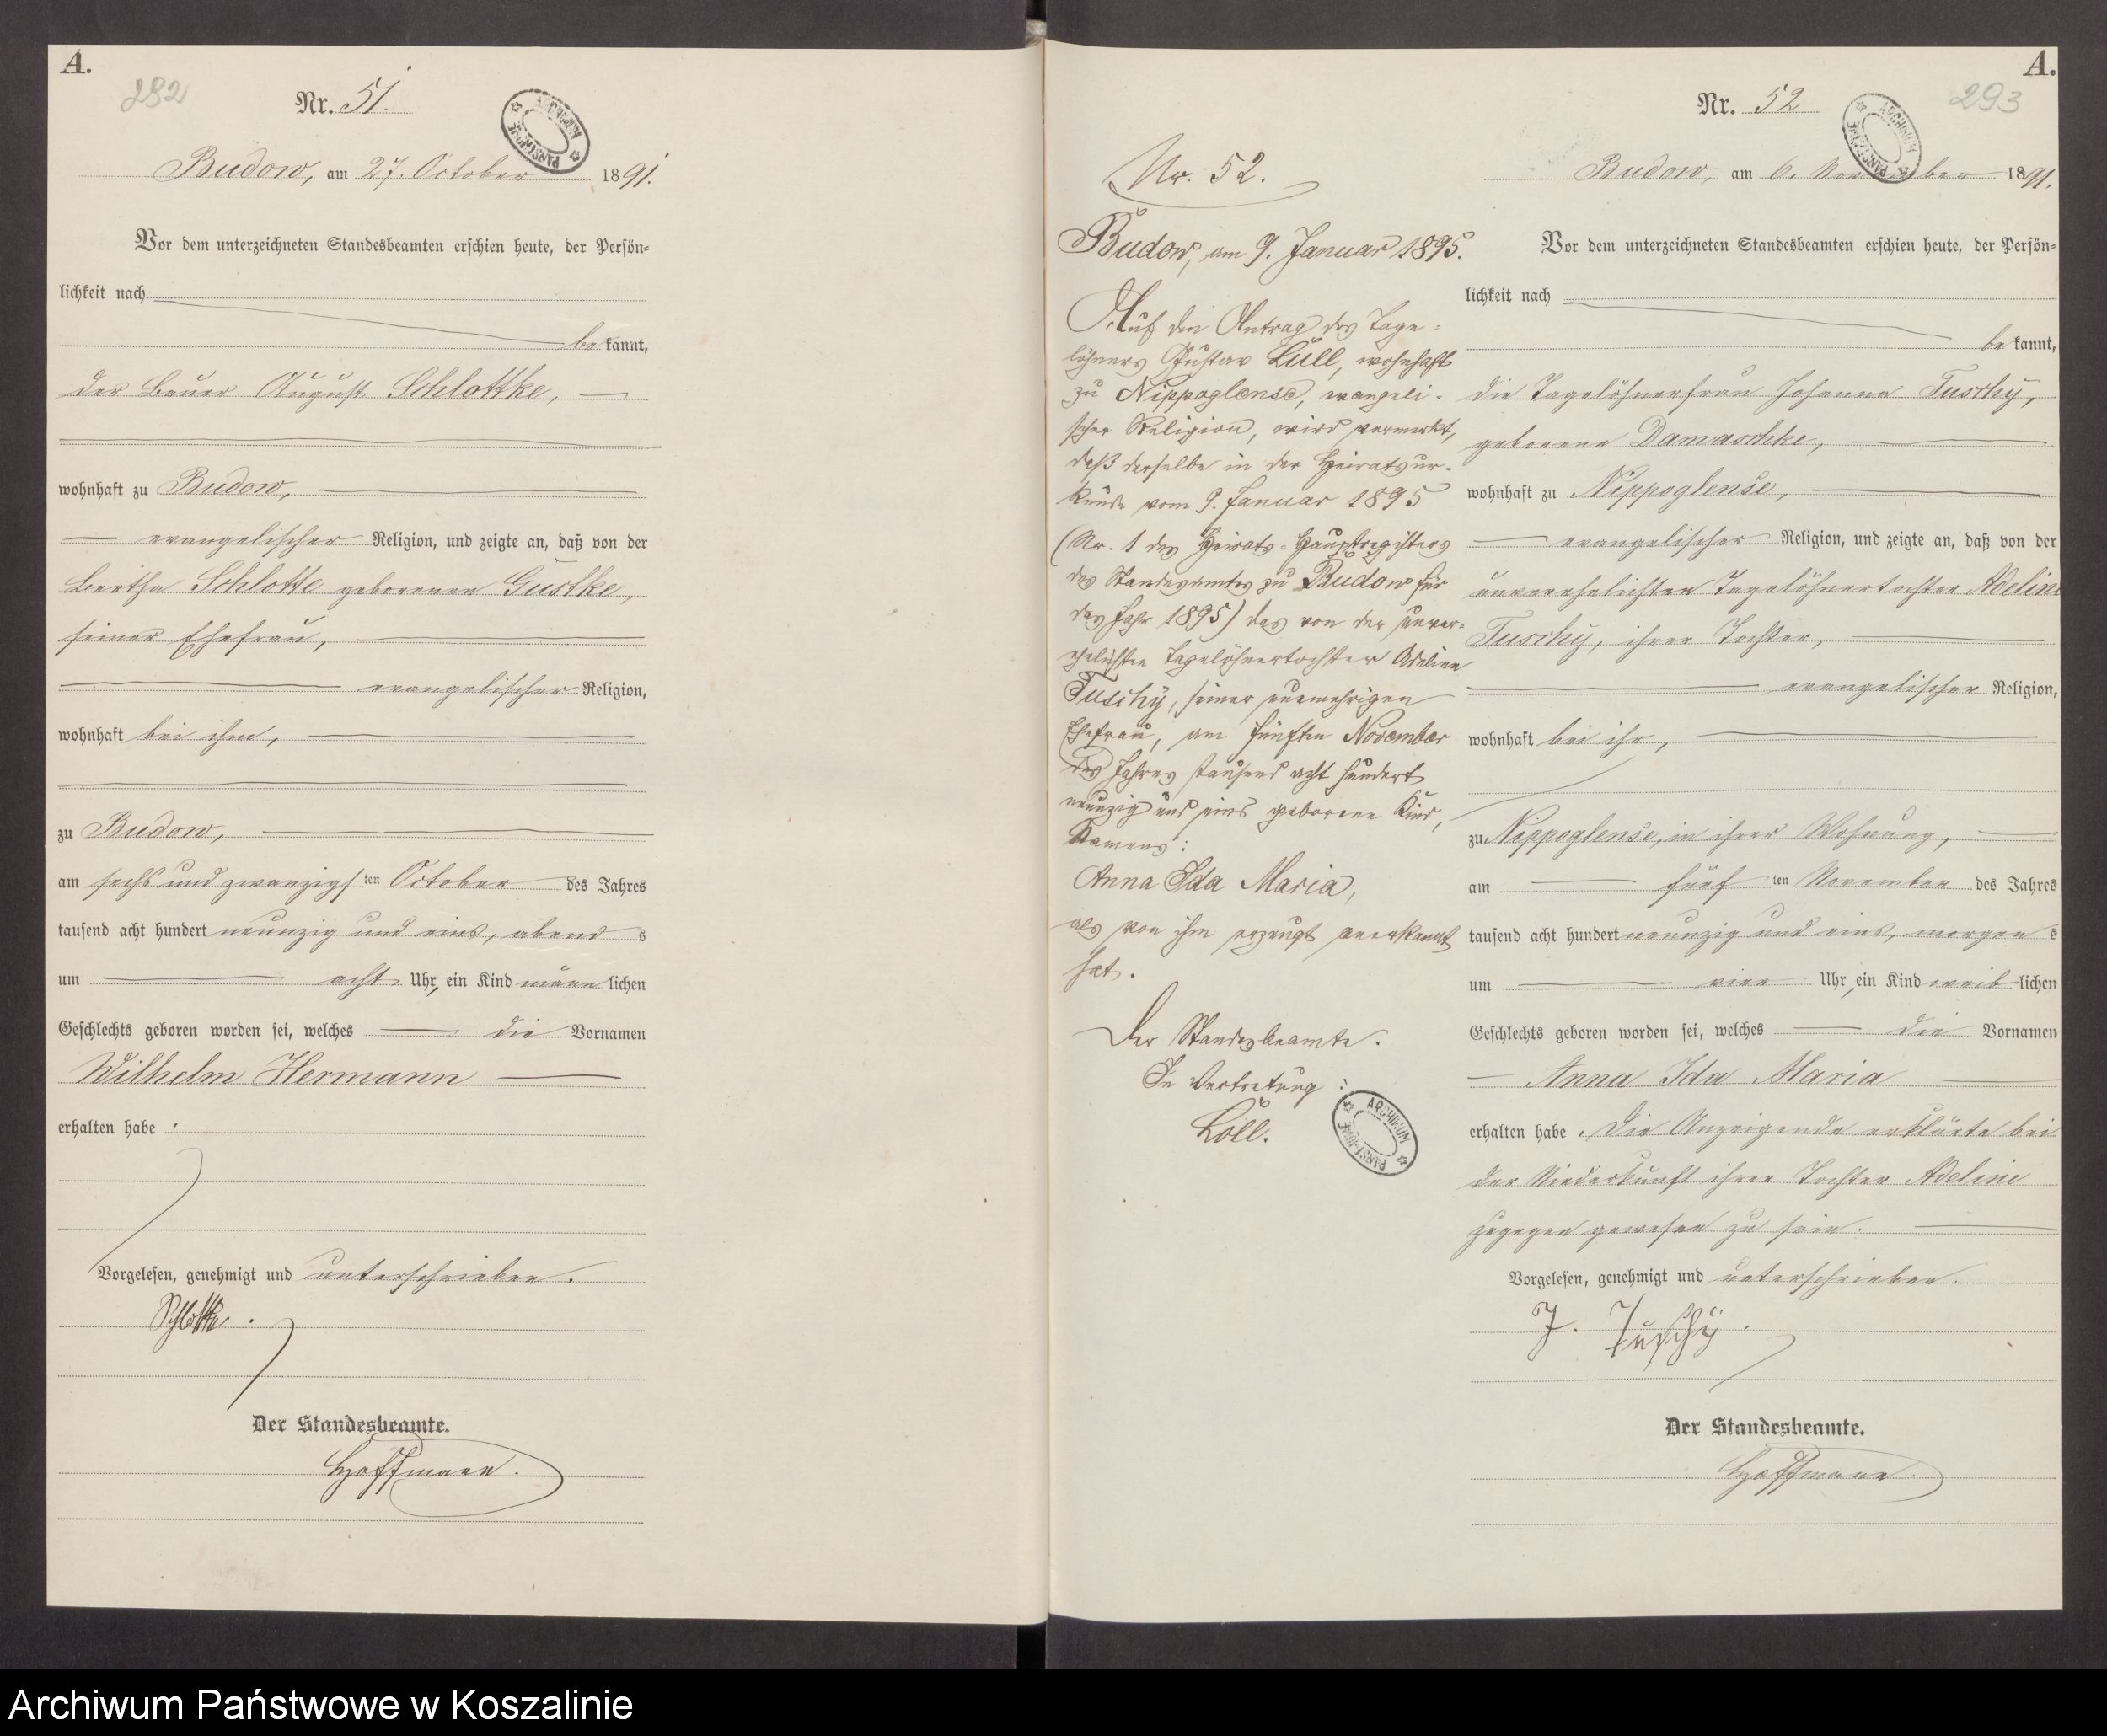 A.
282
Nr. 51.
ARCHIWUM PAŃSTWOWE
Budow, am 27. October 1891.
Vor dem unterzeichneten Standesbeamten erschien heute, der Persön-
lichkeit nach
bekannt,
der Bauer August Schlottke,
wohnhaft zu Budow,
evangelischer Religion, und zeigte an, daß von der
Bertha Schlotte geborenen Gustke,
seiner Ehefrau,
evangelischer Religion,
wohnhaft bei ihm,
zu Budow,
am sechs und zwanzigsten October des Jahres
tausend acht hundert neunzig und eins, abends
um acht Uhr, ein Kind männlichen
Geschlechts geboren worden sei, welches die Vornamen
Wilhelm Hermann
erhalten habe.
Vorgelesen, genehmigt und unterschrieben.
Schlottke.
Der Standesbeamte.
Hoffmann.
Nr. 52.
Budow, am 9. Januar 1895.
Auf den Antrag des Tage-
löhners Gustav Lüll, wohnhaft
zu Nippoglense, evangeli-
scher Religion, wird vermerkt,
daß derselbe in der Heiratsur-
kunde vom 9. Januar 1895
(Nr. 1 des Heirats-Hauptregisters
des Standesamtes zu Budow für
das Jahr 1895) das von der unver-
ehelichten Tagelöhnertochter Adeline
Tuschy, seiner nunmehrigen
Ehefrau, am fünften November
des Jahres tausend acht hundert
neunzig und eins geborene Kind,
Namens:
Anna Ida Maria,
als von ihm erzeugt anerkannt
hat.
Der Standesbeamte.
In Vertretung:
Löll.
ARCHIWUM PAŃSTWOWE
A.
293
Nr. 52
ARCHIWUM PAŃSTWOWE
Budow, am 6. November 1891.
Vor dem unterzeichneten Standesbeamten erschien heute, der Persön-
lichkeit nach
bekannt,
die Tagelöhnerfrau Johanna Tuschy,
geborene Damaschke,
wohnhaft zu Nippoglense,
evangelischer Religion, und zeigte an, daß von der
unverehelichten Tagelöhnertochter Adeline
Tuschy, ihrer Tochter,
evangelischer Religion,
wohnhaft bei ihr,
zu Nippoglense, in ihrer Wohnung,
am fünften November des Jahres
tausend acht hundert neunzig und eins, morgens
um vier Uhr, ein Kind weiblichen
Geschlechts geboren worden sei, welches die Vornamen
Anna Ida Maria
erhalten habe. Die Anzeigende erklärte bei
der Niederkunft ihrer Tochter Adeline
zugegen gewesen zu sein.
Vorgelesen, genehmigt und unterschrieben.
J. Tuschy.
Der Standesbeamte.
Hoffmann.
Archiwum Państwowe w Koszalinie